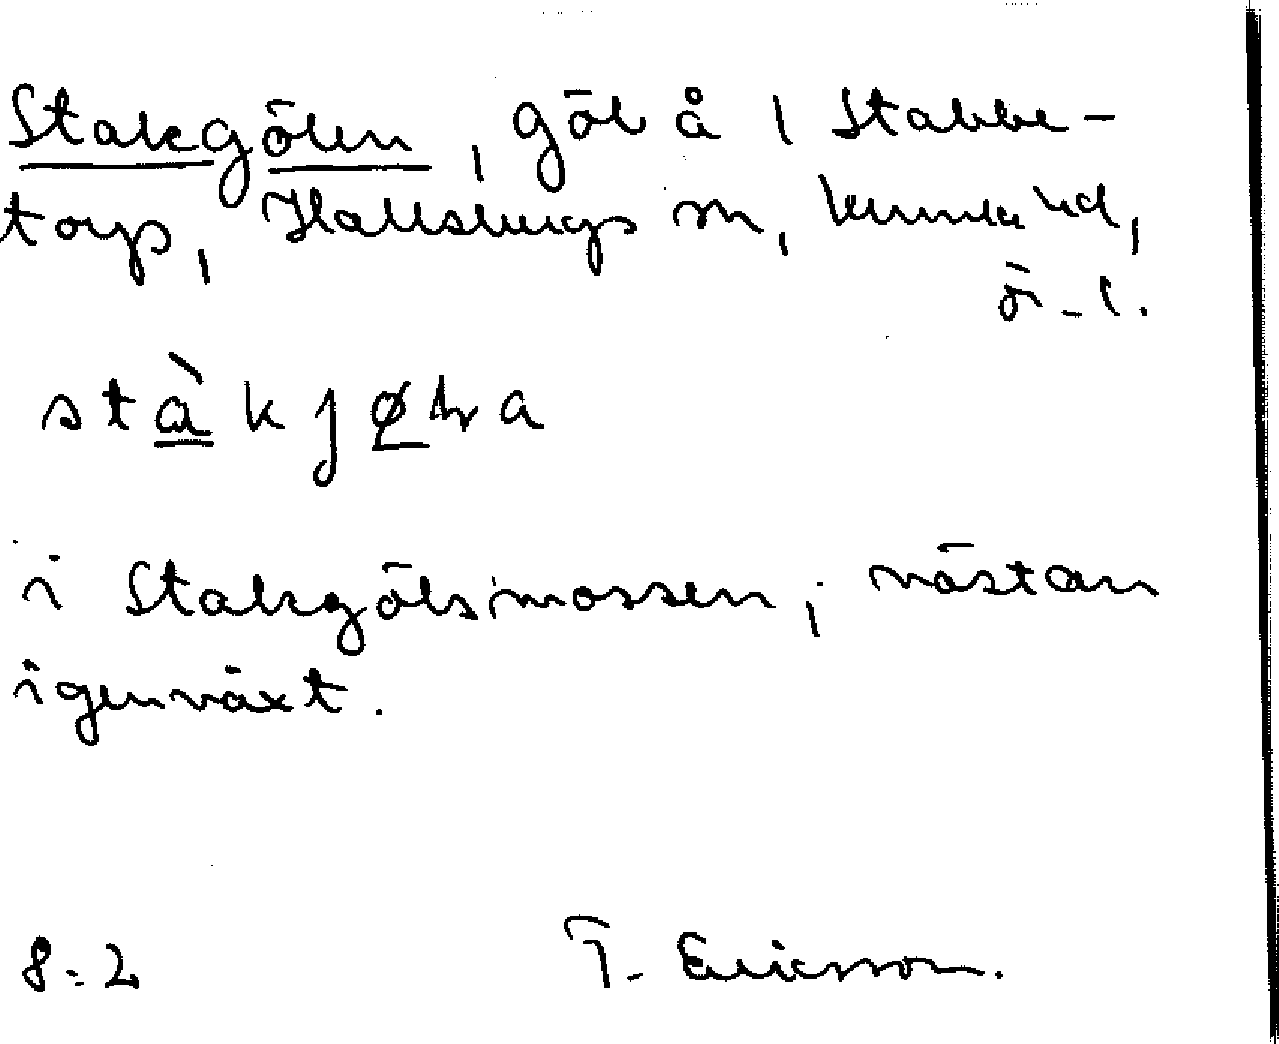 Stakgölen, göl å 1 Stabbe-
torp, Hallsbergs sn, Kumla hd,
ö-l.
stàkjøLa
i Stakgölsmossen, nästan
igenväxt.
8:2 T. Ericsson.